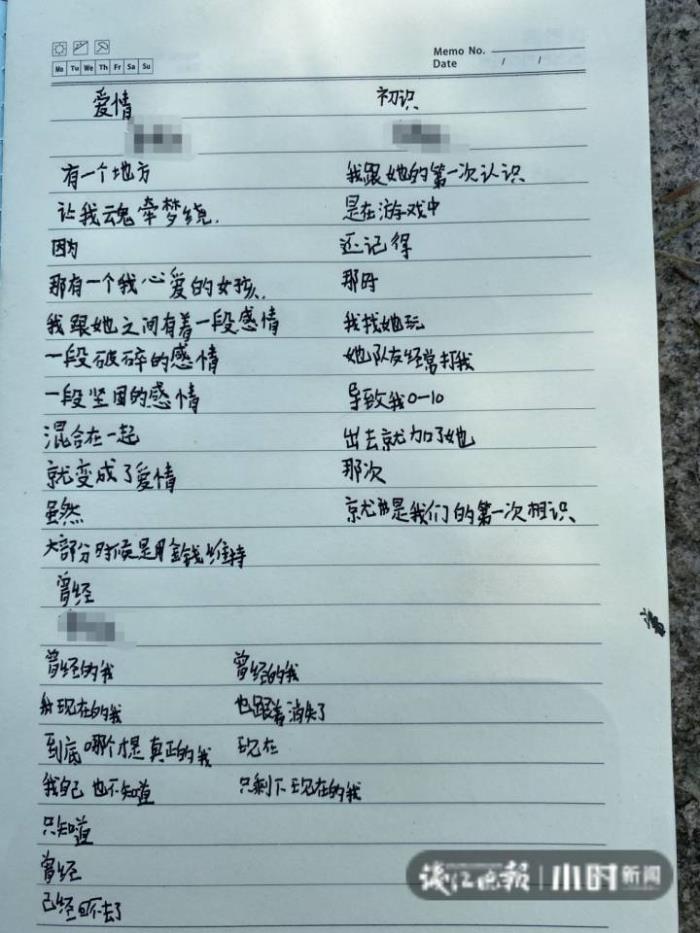 Memo No.
Mo Tu We Th Fr Sa Su
Date / /
爱情
有一个地方
让我魂牵梦绕.
因为
那有一个我心爱的女孩.
我跟她之间有着一段感情
一段破碎的感情
一段坚固的感情
混合在一起
就变成了爱情
虽然
大部分时候是用金钱维持
初识
我跟她的第一次认识
是在游戏中
还记得
那时
我找她玩
她队友经常打我
导致我0-10
出去就加了她
那次
就是我们的第一次相识
曾经
曾经的我
和现在的我
到底哪个才是真正的我
我自己也不知道
只知道
曾经
已经回不去了
曾经的我
也跟着消失了
现在
只剩下现在的我
钱江晚报 小时新闻